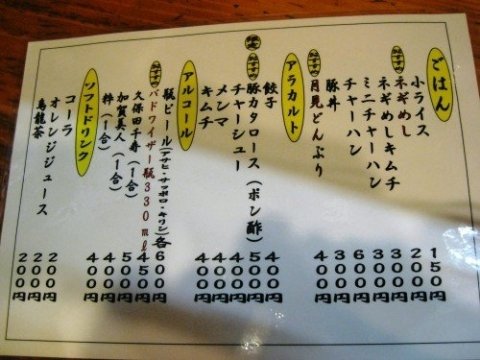 ごはん
小ライス 150円
おすすめ
ネギめし 200円
ネギめしキムチ 300円
ミニチャーハン 300円
チャーハン 600円
豚丼 300円
おすすめ
月見どんぶり 400円
アラカルト
餃子 400円
おすすめ
豚カタロース(ポン酢) 500円
チャーシュー 400円
メンマ 400円
キムチ 400円
アルコール
瓶ビール(アサヒ・サッポロ・キリン)各 600円
おすすめ
バドワイザー瓶330ml 450円
久保田千寿(一合) 500円
加賀美人(一合) 400円
粋(一合) 400円
ソフトドリンク
コーラ 200円
オレンジジュース 200円
烏龍茶 200円